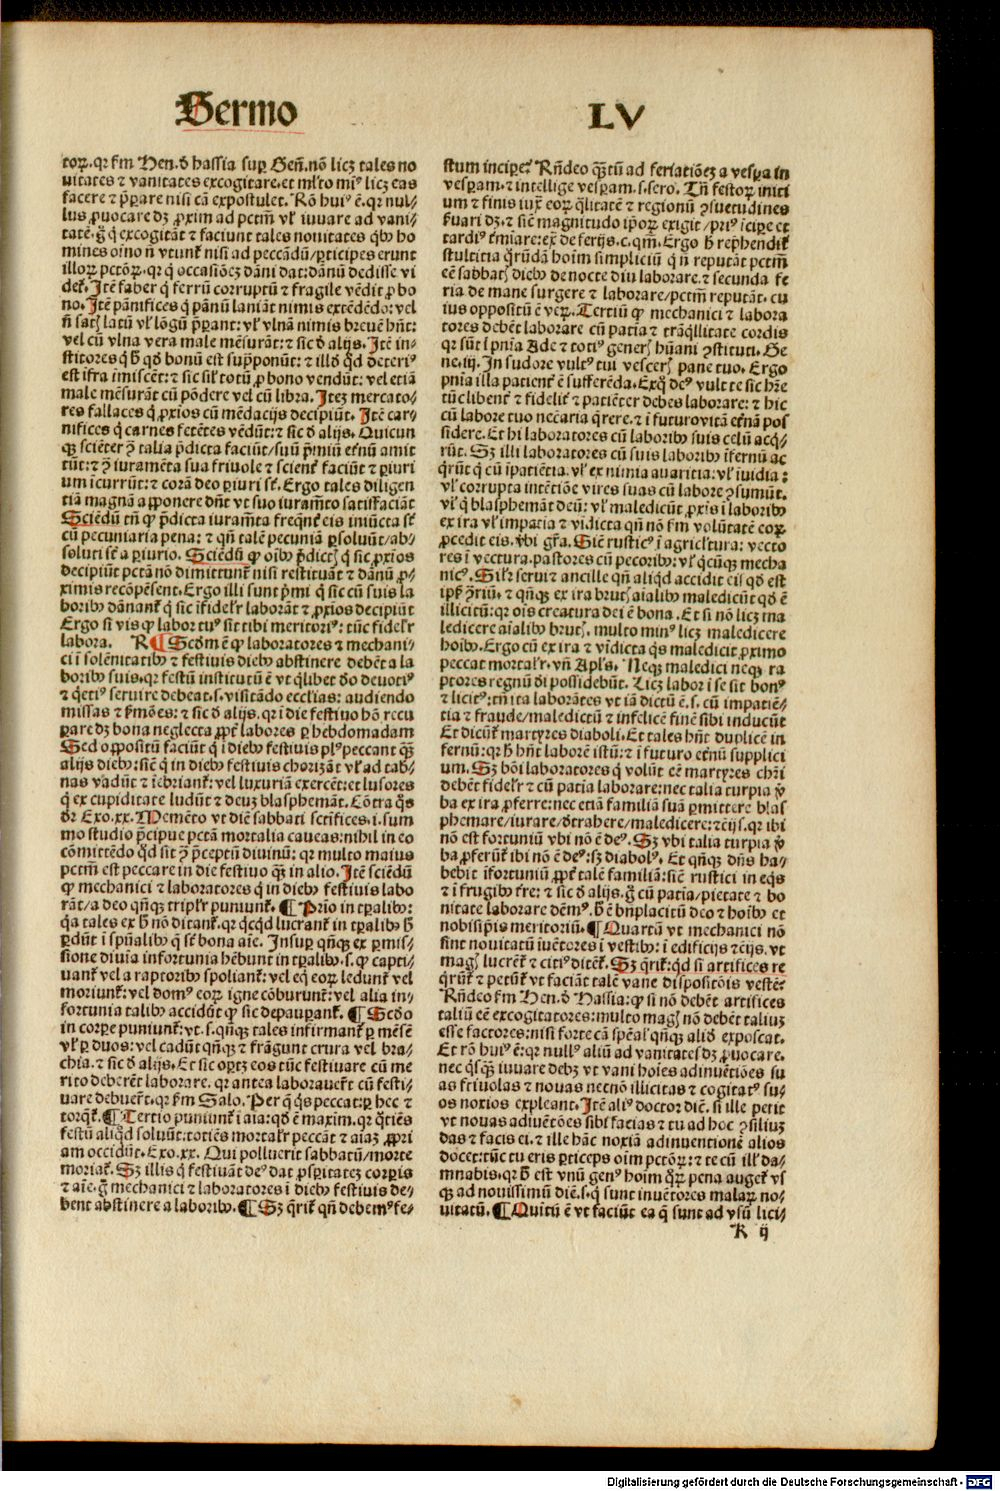 Sermo LV
toꝝ. qꝛ ẜm Hen. ð hassia suꝑ Geñ. nõ licꝫ tales no
uitates ⁊ vanitates excogitare. et ml̕to miꝰ licꝫ eas
facere ⁊ p̄ꝑare nisi cã expostulet. Rõ huiꝰ ē. qꝛ nul⸗
lus ꝓuocare dꝫ ꝓxim ad pctm̄ vl̕ iuuare ad vani⸗
tatē. g̃ q̇ excogitãt ⁊ faciunt tales nouitates qᷓbꝰ ho
mines oĩno ñ vtunt᷑ nisi ad peccãdũ/ꝑticipes erunt
illoꝝ pctõꝝ. qꝛ q̇ occasiõeꝫ dãni dat: dãnũ dedisse vi
det᷑. Itē faber q̇ ferrũ corruptũ ⁊ fragile vẽdit ꝓ bo
no. Itē panifices q̇ pãnũ laniãt nimis extẽdẽdo: vel
ñ satꝭ latũ vl̕ lõgũ p̄ꝑant: vl̕ vlnã nimis breuẽ hñt:
vel cũ vlna vera male mẽsurãt: ⁊ sic ð alijs. Itē in⸗
stitores q̇ h̄ qð bonũ est sup̄ponũt: ⁊ illð qð deteriꝰ
est ĩfra imiscẽt: ⁊ sic sil̕ totũ ꝓ bono vendũt: vel etiã
male mẽsurãt cũ põdere vel cũ libra. Iteꝫ mercato⸗
res fallaces q̇ ꝓxĩos cũ mẽdacijs decipiũt. Itē car⸗
nifices q̇ carnes fetẽtes vẽdũt: ⁊ sic ð alijs. Quicun
qꝫ sciẽter ꝯ̃ talia p̄dicta faciũt/suũ p̄miũ et̃nũ amit
tũt: ⁊ ꝑ iuramẽta sua friuole ⁊ scient᷑ faciũt ⁊ ꝑiuri
um ĩcurrũt: ⁊ corã deo ꝑiuri sẽ. Ergo tales diligen
tiã magnã apponere dñt vt suo iuram̃to satisfaciãt
Sciẽdũ tñ ꝙ p̄dicta iuram̃ta freq̃nt᷑ eis iniũcta sẽ
cũ pecuniaria pena: ⁊ qñ talẽ pecuniã ꝑsoluũt/ab⸗
soluti sẽ a ꝑiurio. Sciẽdũ ꝙ oĩbꝰ p̄dictꝭ q̇ sic ꝓxĩos
decipiũt pctã nõ dimittunt᷑ nisi restituãt ⁊ dãnũ ꝓ⸗
ximis recõpẽsent. Ergo illi sunt p̄mi q̇ sic cũ suis la
boribꝰ dãnant᷑ q̇ sic ĩfidelr̃ laborãt ⁊ ꝓxios decipiũt
Ergo si vis ꝙ labor tuꝰ sit tibi meritoriꝰ: tũc fidelr̃
labora. R ¶ Scðm ē ꝙ laboratores ⁊ mechani⸗
ci ĩ solẽnitatibꝰ ⁊ festiuis diebꝰ abstinere debẽt a la
boribꝰ suis. qꝛ festũ institutũ ē vt qͥlibet ðo deuotiꝰ
⁊ qͥetiꝰ seruire debeat. s. visitãdo eccl̃ias: audiendo
missas ⁊ ẜmões: ⁊ sic ð alijs. qꝛ ĩ die festiuo hõ recu
ꝑare dꝫ bona neglecta ꝓpt᷑ labores ꝑ hebdomadam
Sed oppositũ faciũt q̇ ĩ diebꝰ festiuis plꝰ peccant qᷓꝫ
alijs diebꝰ: sic̃ q̇ in diebꝰ festiuis chorizãt vl̕ ad tab̃⸗
nas vadũt ⁊ ĩebriant᷑: vel luxuriã exercẽt: et lusores
q̇ ex cupiditate ludũt ⁊ deuꝫ blasphemãt. Cõtra q̃s
dr̃ Exo. xx. Memẽto vt diẽ sabbati sctĩfices. i. sum
mo studio p̄cipue pctã mortalia caueas: nihil in eo
cõmittẽdo qð sit ꝯ̃ p̄ceptũ diuinũ: qꝛ multo maius
pctm̄ est peccare in die festiuo qᷓꝫ in alio. Itē sciẽdũ
ꝙ mechanici ⁊ laboratores q̇ in diebꝰ festiuis labo
rãt/a deo qñqꝫ triplr̃ puniunt᷑. ¶ Prio in tꝑalibꝰ:
qͥa tales ex h̄ nõ ditant᷑. qꝛ qͥcqͥd lucrant᷑ in tꝑalibꝰ h̄
ꝑdũt ĩ spũalibꝰ q̇ sẽ bona aĩe. Insuꝑ qñqꝫ ex ꝑmis⸗
sione diuĩa infortunia hẽbunt in tꝑalibꝰ. s. ꝙ capti⸗
uant᷑ vel a raptoribꝰ spoliant᷑: vel eq̇ eoꝝ ledunt᷑ vel
moriunt᷑: vel domꝰ eoꝝ igne cõburunt᷑: vel alia in⸗
fortunia talibꝰ accidũt ꝙ sic depauꝑant᷑. ¶ Scðo
in corpe puniunt᷑: vt. s. qñqꝫ tales infirmant᷑ ꝑ mẽsẽ
vl̕ ꝑ duos: vel cadũt qñqꝫ ⁊ frãgunt crura vel bra⸗
chia. ⁊ sic ð alijs. Et sic oꝑtꝫ eos tũc festiuare cũ me
rito deberẽt laborare. qꝛ antea laborauer̃t cũ festi⸗
uare debuer̃t. qꝛ ẜm Salo. Per q̃ q̇s peccat: ꝑ hec ⁊
torq̃t᷑. ¶ Tertio puniunt᷑ ĩ aĩa: qð ē maxim. qꝛ qͦtiẽs
festũ aliqð soluũt: totiẽs mortalr̃ peccãt ⁊ aĩaꝫ ꝓpri
am occidũt. Exo. xx. Qui polluerit sabbatũ/morte
moriat᷑. Sꝫ illis q̇ festiuãt deꝰ dat ꝓsꝑitateꝫ corꝑis
⁊ aĩe. g̃ mechanici ⁊ laboratores ĩ diebꝰ festiuis de⸗
bent abstinere a laboribꝰ. ¶ Sꝫ q̃rit᷑ qñ debemꝰ fe⸗
stum incipeꝛ? Rñdeo qᷓꝫtũ ad feriatiõeꝫ a vesꝑa in
vesꝑam. ⁊ intellige vesꝑam. s. sero. Tñ festoꝝ initi
um ⁊ finis iux̃ eoꝝ q̃litatẽ ⁊ regionũ ꝯsuetudines
ẜuari dꝫ. ⁊ sic̃ magnitudo ip̃oꝝ exigit/priꝰ ĩcipe et
tardiꝰ t̃miare: ex̃ de ferijs. c. qm̄. Ergo h̄ rep̃hendit᷑
stultitia qͦrũdã hoĩm simpliciũ q̇ ñ reputãt pctm̄
eẽ sabbatꝭ diebꝰ de nocte diu laborare. ⁊ secunda fe
ria de mane surgere ⁊ laborare/pctm̄ reputãt. cu
ius oppositũ ē veꝝ. Tertiũ ꝙ mechanici ⁊ labora
tores debẽt laborare cũ patia ⁊ trãq̇llitate cordis
qꝛ sũt ĩ pñia Ade ⁊ totiꝰ generꝭ hũani ꝯstituti. Ge
ne. iij. In sudore vultꝰ tui vescerꝭ pane tuo. Ergo
pñia illa patient᷑ ē sufferẽda. Exq̇ deꝰ vult te sic hr̃e
tũc libent᷑ ⁊ fidelit᷑ ⁊ patiẽter debes laborare: ⁊ hic
cũ labore tuo nẽcaria q̃rere. ⁊ ĩ futuro vitã et̃nã pos
sidere. Et hi laboratores cũ laboribꝰ suis celũ acq̇⸗
rũt. Sꝫ illi laboratores cũ suis laboribꝰ ĩfernũ ac
q̇rũt q̇ cũ ĩpatiẽtia. vl̕ ex nimia auaritia: vl̕ ĩuidia:
vl̕ corrupta intẽtiõe vires suas cũ labore ꝯsumũt.
vl̕ q̇ blasphemãt deũ: vl̕ maledicũt ꝓxĩs ĩ laboribꝰ
ex ira vl̕ impatia ⁊ vidicta qñ nõ ẜm volũtatẽ eoꝝ
ꝓcedit eis. v̾bi gr̃a. Sic̃ rusticꝰ ĩ agricl̃tura: vecto
res ĩ vectura. pastores cũ pecoribꝰ: vl̕ q̇cũqꝫ mecha
nicꝰ. Silr̃ serui ⁊ ancille qñ aliq̇d accidit eis qð est
ip̃ꝭ ꝯ̃riũ. ⁊ qñqꝫ ex ira brutꝭ aĩalibꝰ maledicũt qð ē
illicitũ: qꝛ oĩs creatura dei ē bona. Et si nõ licꝫ ma
ledicere aĩalibꝰ brutꝭ. multo minꝰ licꝫ maledicere
hoĩbꝰ. Ergo cũ ex ira ⁊ vidicta q̇s maledicit ꝓximo
peccat mortalr̃. vñ Apl̃s. Neqꝫ maledici neqꝫ ra
ptores regnũ dĩ possidebũt. Licꝫ labor ĩ se sit bonꝰ
⁊ licitꝰ: tñ ita laborãtes vt iã dictũ ē. s. cũ impatiẽ⸗
tia ⁊ fraude/maledictũ ⁊ infelicẽ finẽ sibi inducũt
Et dicunt᷑ martyres diaboli. Et tales hñt duplicẽ in
fernũ: qꝛ h̄ hñt laborẽ istũ: ⁊ ĩ futuro et̃nũ supplici
um. Sꝫ bõi laboratores q̇ volũt eẽ martyres chr̃i
debẽt fidelr̃ ⁊ cũ patia laborare: nec talia turpia v̾
ba ex ira ꝓferre: nec etiã familiã suã ꝑmittere blas
phemare/iurare/ðtrahere/maledicere: ⁊c̃ijs. qꝛ ibi
nõ est fortuniũ vbi nõ ē deꝰ. Sꝫ vbi talia turpia v̾
ba ꝓferũt᷑ ibi nõ ē deꝰ: sꝫ diabolꝰ. Et qñqꝫ dñs ha⸗
bebit ĩfortuniũ ꝓpt᷑ talẽ familiã: sic̃ rustici in eq̇s
⁊ ĩ frugibꝰ t̃re: ⁊ sic ð alijs. g̃ cũ patia/pietate ⁊ bo
nitate laborare dẽmꝰ. h̄ ē bñplacitũ deo ⁊ hoĩbꝰ et
nobisip̃is meritoriũ. ¶ Quartũ vt mechanici nõ
sint nouitatũ ĩuẽtores ĩ vestibꝰ: ĩ edificijs ⁊c̃ijs. vt
magꝭ lucrẽt᷑ ⁊ citiꝰ ditẽt᷑. Sꝫ q̃rit᷑: qð si artifices re
q̇rũt᷑ ⁊ petũt᷑ vt faciãt talẽ vane dispositõis vestẽ?
Rñdeo ẜm Hen. ð Hassia: ꝙ si nõ debẽt artifices
taliũ eẽ excogitatores: multo magꝭ nõ debẽt taliuꝫ
esse factores: nisi forte cã sp̃eal̕ qñqꝫ alið exposcat.
Et rõ huiꝰ ē: qꝛ nullꝰ aliũ ad vanitates dꝫ ꝓuocare.
nec q̇sqᷓꝫ iuuare debꝫ vt vani hoĩes adinuẽtiões su
as friuolas ⁊ nouas necnõ illicitas ⁊ cogitatꝰ su⸗
os noxios expleant. Itē aliꝰ doctor diẽ. si ille petit
vt nouas adiuẽtões sibi facias ⁊ tu ad hoc ꝯsiliuꝫ
das ⁊ facis ei. ⁊ ille hãc noxiã adinuentionẽ alios
docet: tũc tu eris ꝑticeps oĩm pctõꝝ: ⁊ te cũ ill̕ da⸗
mnabis. qꝛ h̄ est vnũ genꝰ hoĩm qͦꝝ pena auget᷑ vs
qꝫ ad nouissimũ diẽ. s. q̇ sunt inuẽtores malaꝝ no⸗
uitatũ. ¶ Quĩtũ ē vt faciũt ea q̃ sunt ad vsũ lici⸗
K ij
Digitalisierung gefördert durch die Deutsche Forschungsgemeinschaft - DFG